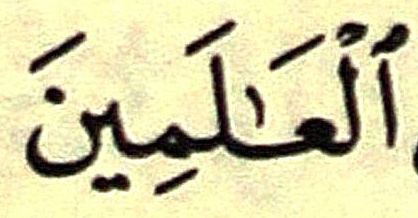 ٱلْعَـٰلَمِينَ